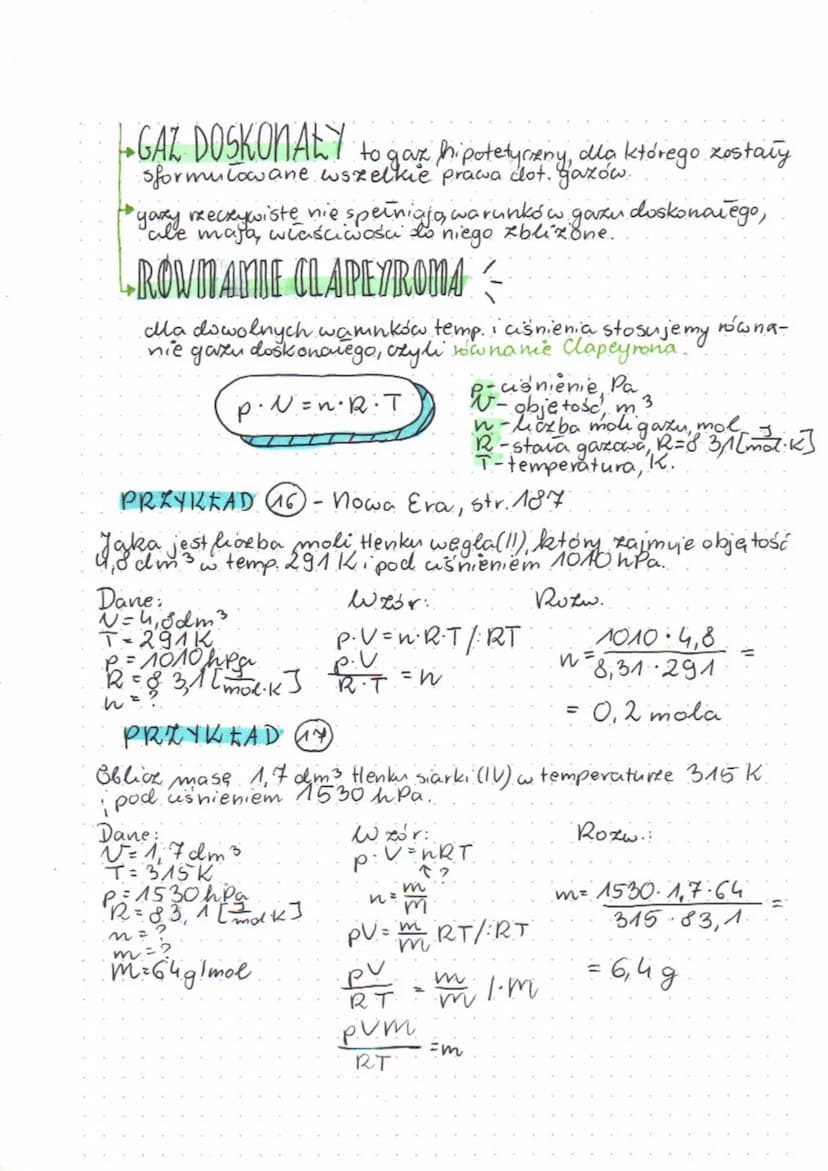 GAZ DOSKONAŁY to gaz hipotetyczny, dla którego zostały
sformułowane wszelkie prawa dot. gazów.
gazy rzeczywiste nie spełniają warunków gazu doskonałego,
ale mają właściwości do niego zbliżone.
RÓWNANIE CLAPEYRONA
dla dowolnych warunków temp. i ciśnienia stosujemy równa-
nie gazu doskonałego, czyli równanie Clapeyrona.
p · V = n · R · T
p - ciśnienie, Pa
V - objętość, m³
n - liczba moli gazu, mol
R - stała gazowa, R=8 3,1 [J/mol·K]
T - temperatura, K.
PRZYKŁAD 16 - Nowa Era, str. 187
Jaka jest liczba moli tlenku węgla(II), który zajmuje objętość
4,8 dm³ w temp. 291 K i pod ciśnieniem 1010 hPa.
Dane:
V = 4,8dm³
T = 291K
p = 1010 hPa
R = 8 3,1 [J/mol·K]
n = ?
Wzór:
p·V = n·R·T /:RT
p·V/R·T = n
Rozw.
n = 1010 · 4,8/8,31 · 291 =
= 0,2 mola
PRZYKŁAD 17
Oblicz masę 1,7 dm³ tlenku siarki (IV) w temperaturze 315 K
i pod ciśnieniem 1530 hPa.
Dane:
V = 1,7dm³
T = 315K
p = 1530 hPa
R = 83,1 [J/mol·K]
n = ?
m = ?
M = 64g/mol
Wzór:
p·V = nRT
↑ ?
n = m/M
pV = m/M RT /:RT
pV/RT = m/M /·M
pVM/RT = m
Rozw.:
m = 1530 · 1,7 · 64/315 · 83,1 =
= 6,4 g